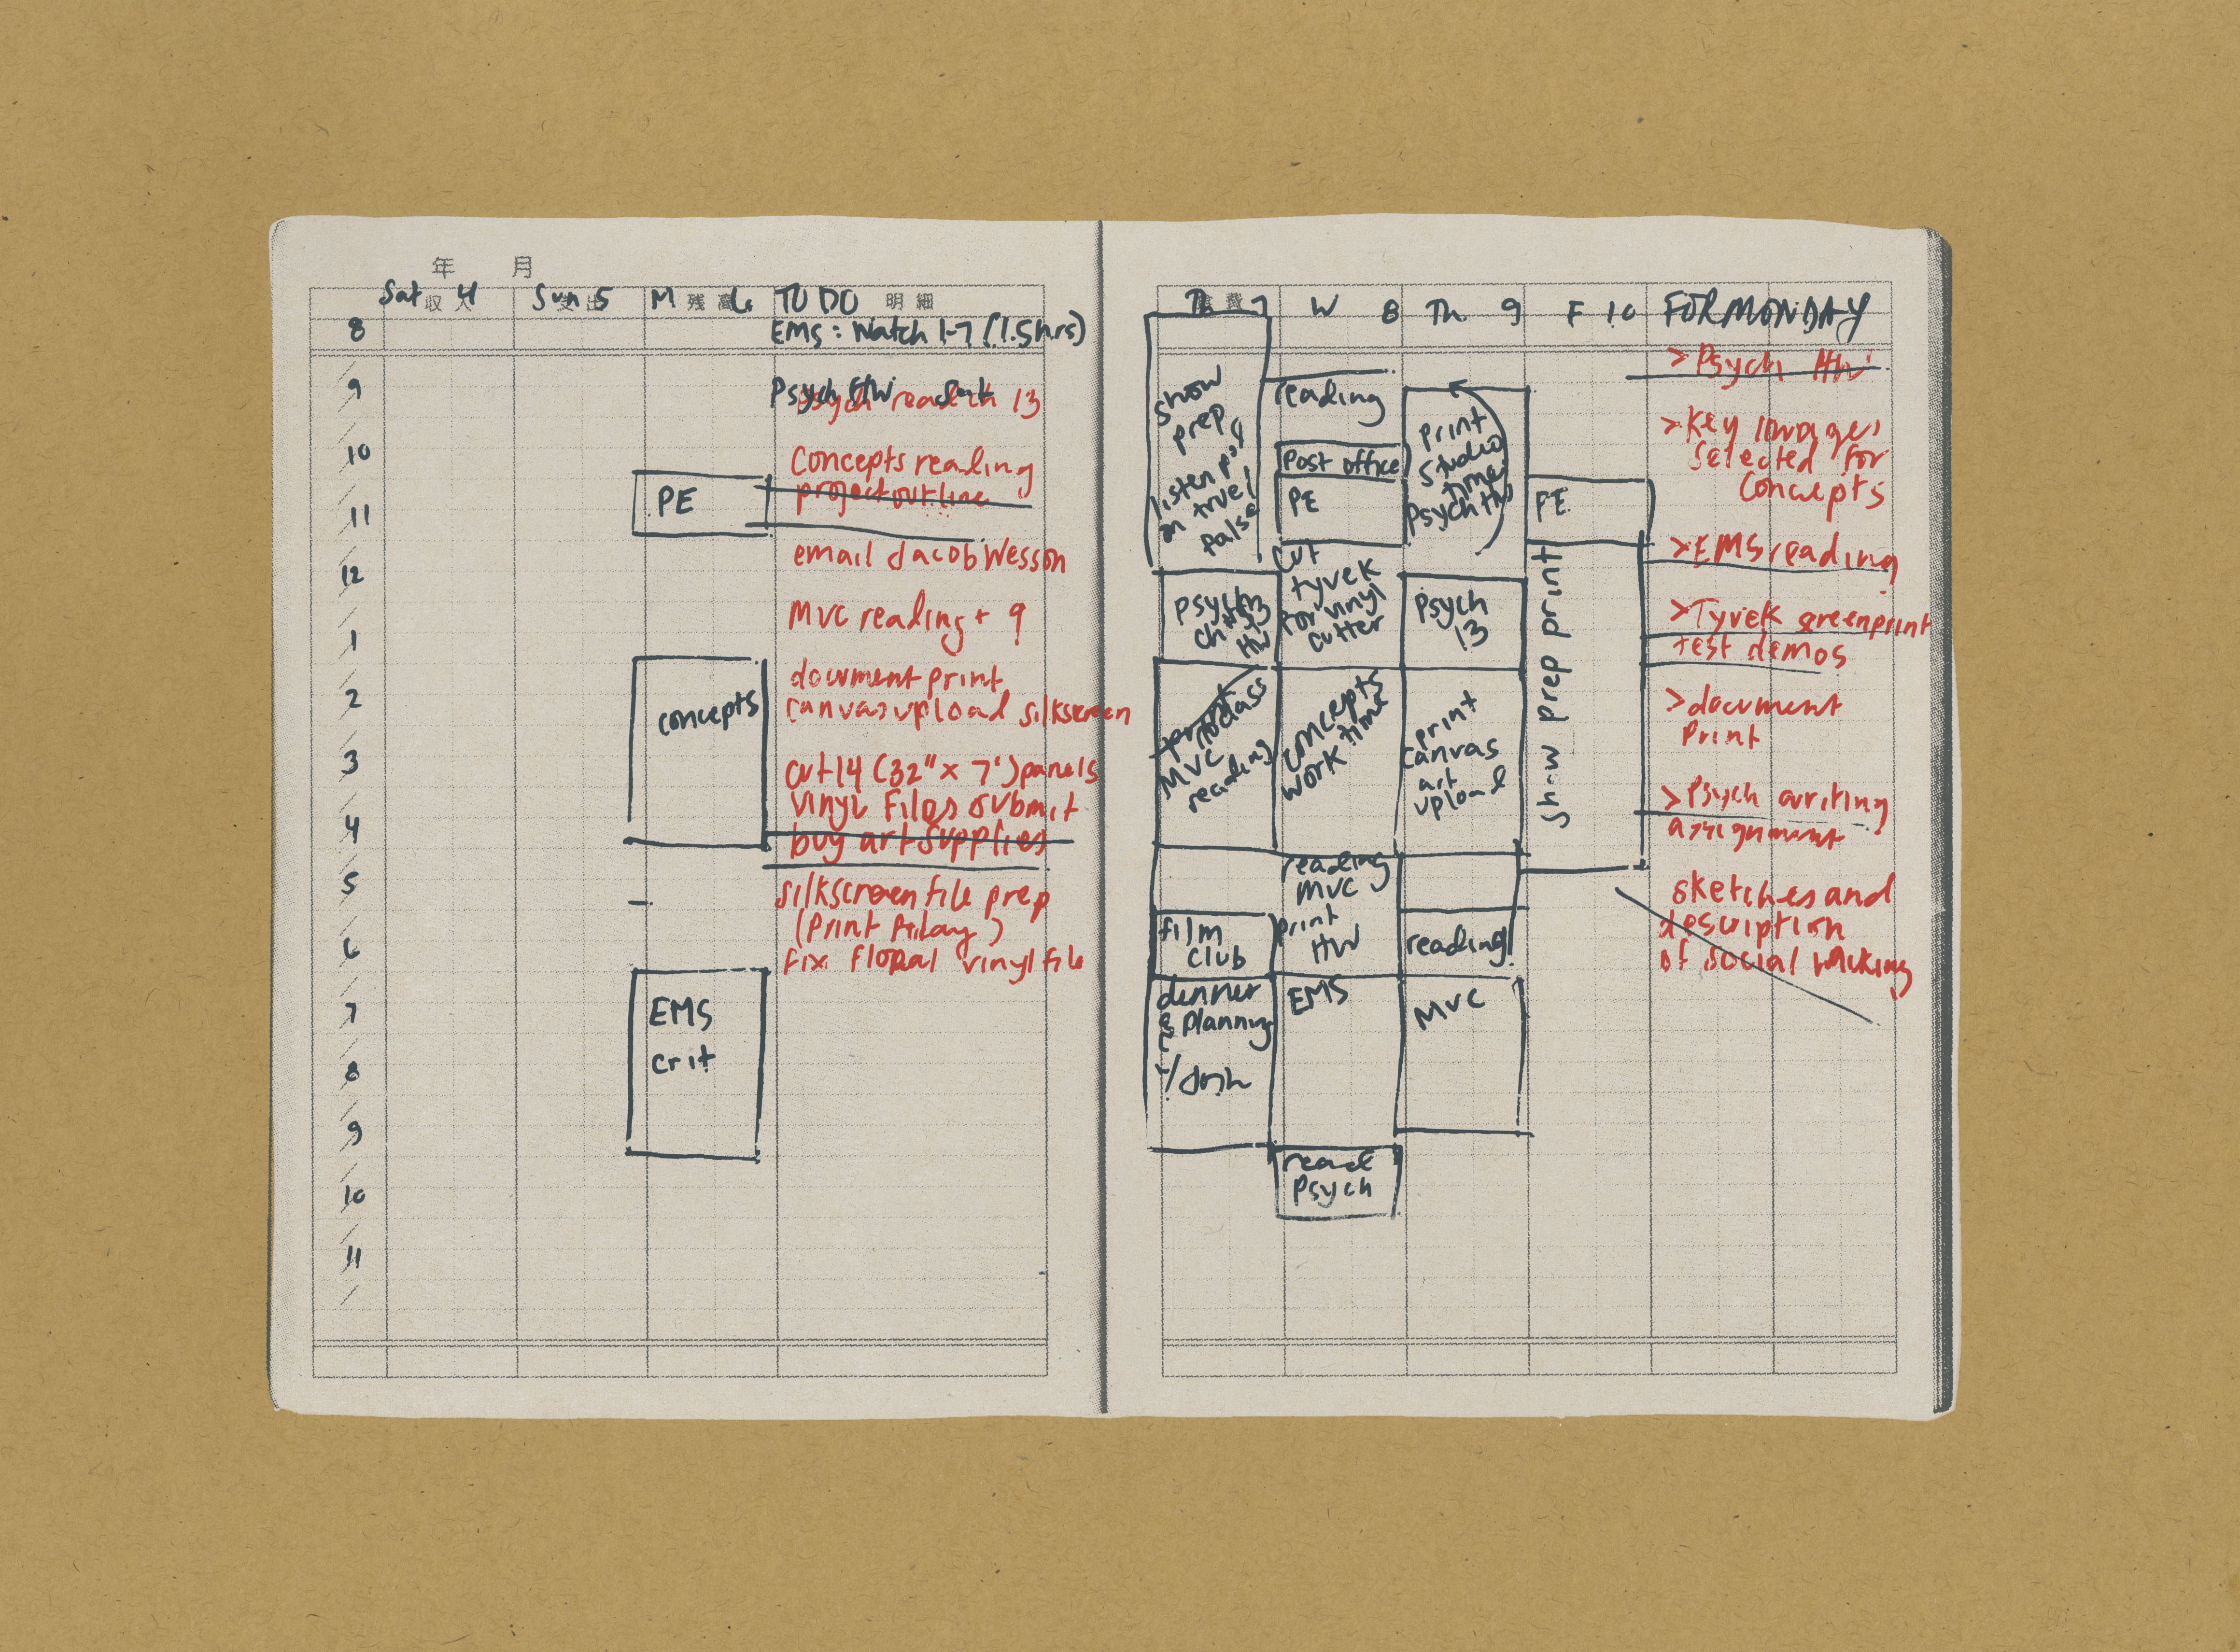 年 月
Sat 4
収入
Sun 5
支出
M 6
残高
TO DO
明細
8
9
10
11
12
1
2
3
4
5
6
7
8
9
10
11
PE
concepts
EMS
crit
EMS: Watch 1-7 (1.5hrs)
Psych HW
psych read ch 13
Concepts reading
project outline
email Jacob Wesson
MVC reading + 9
document print
canvas upload silkscreen
cut 14 (32" x 7') panels
vinyl files submit
buy art supplies
silkscreen file prep
(Print Friday)
fix floral vinyl file
7
W 8
Th 9
F 10
FOR MONDAY
show
prep
listen pod
on true/
false
psych
ch 13
HW
class
MVC
reading
film
club
dinner
& planning
reading
Post office
PE
cut
tyvek
for vinyl
cutter
concepts
work time
reading
MVC
print
HW
EMS
read
psych
print
studio
time
psych HW
Psych
13
print
canvas
art
upload
reading
MVC
PE
show prep print
> Psych HW
> Key images
selected for
Concepts
> EMS reading
> Tyvek screenprint
test demos
> document
Print
> Psych writing
assignment
sketches and
description
of social